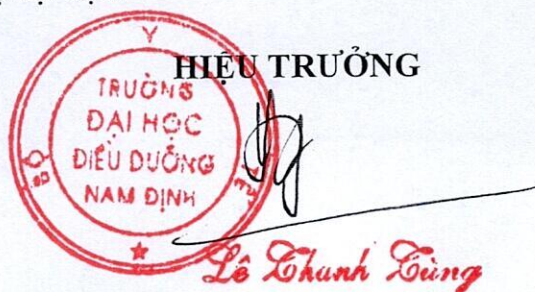 HIỆU TRƯỞNG
TRƯỜNG
ĐẠI HỌC
ĐIỀU DƯỠNG
NAM ĐỊNH
BỘ Y TẾ
Lê Thanh Tùng